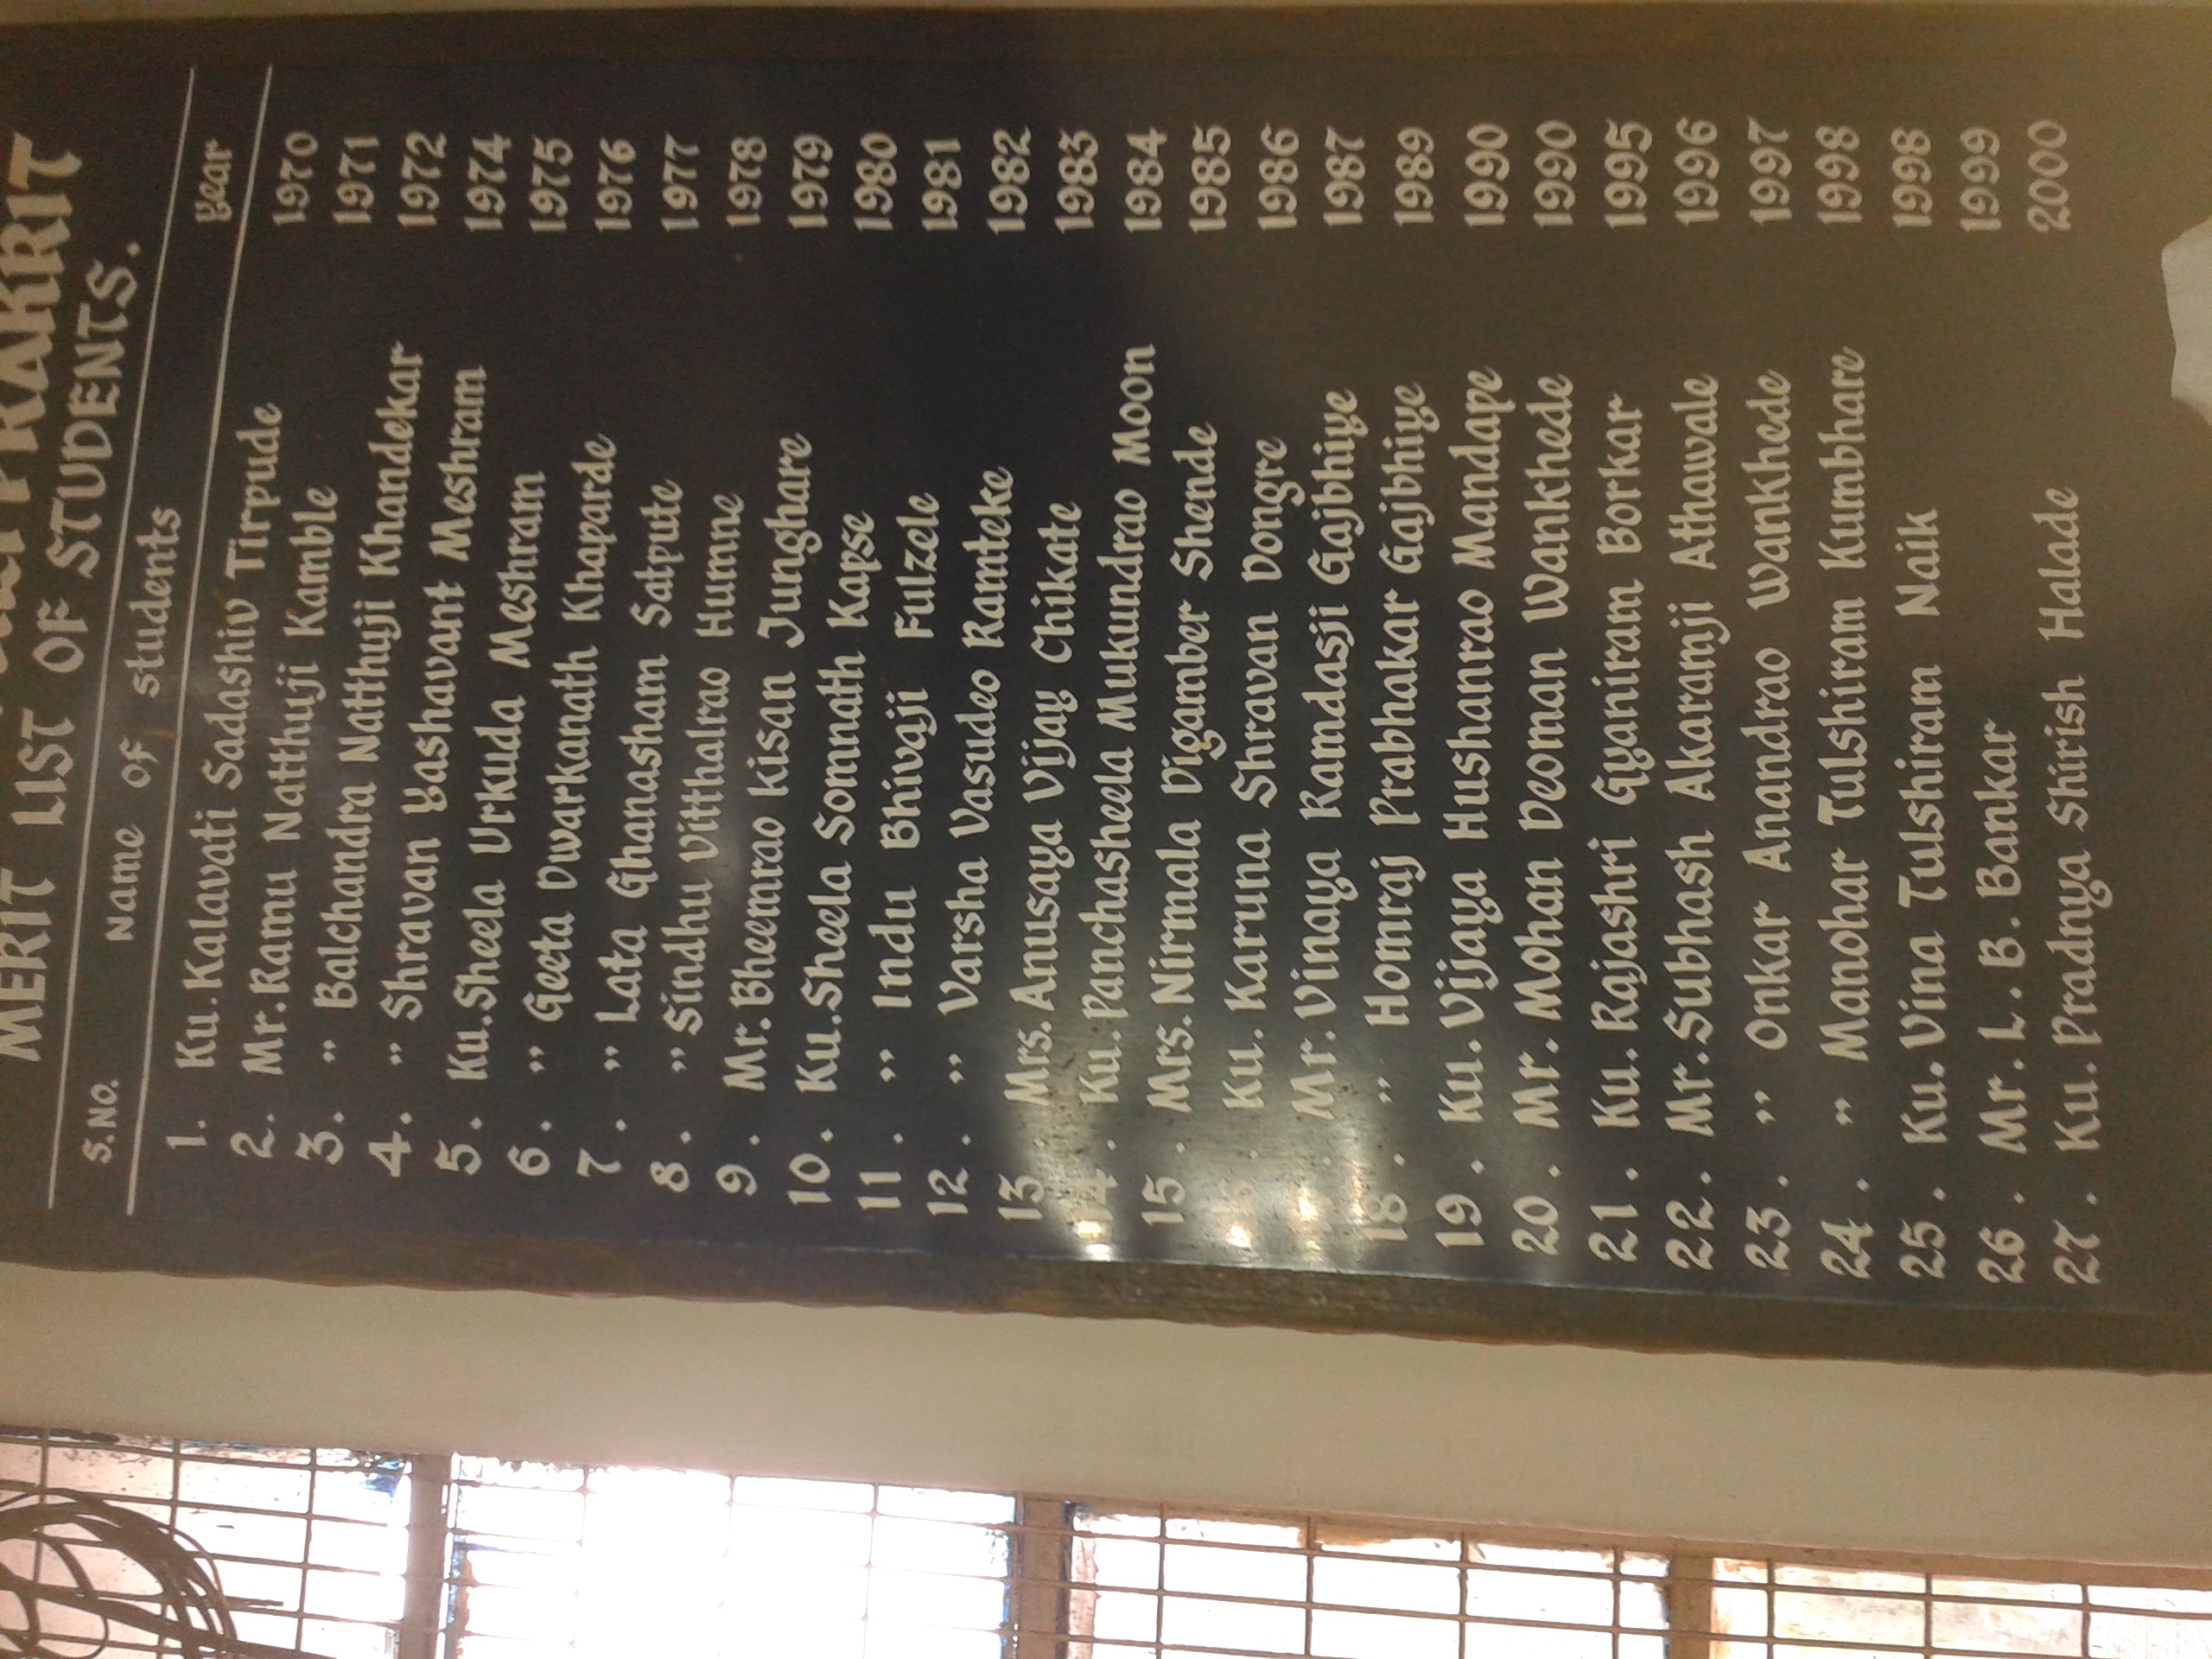 PRAKRIT
MERIT LIST OF STUDENTS.
S.NO. Name of students year
1. Ku. Kalavati Sadashiv Tirpude 1970
2. Mr. Ramu Natthuji Kamble 1971
3. " Balchandra Natthuji Khandekar 1972
4. " Shravan Yashavant Meshram 1974
5. Ku. Sheela Urkuda Meshram 1975
6. " Geeta Dwarkanath Khaparde 1976
7. " Lata Ghanasham Satpute 1977
8. " Sindhu Vitthalrao Humne 1978
9. Mr. Bheemrao Kisan Junghare 1979
10. Ku. Sheela Somnath Kapse 1980
11. " Indu Bhivaji Fulzele 1981
12. " Varsha Vasudeo Ramteke 1982
13. Mrs. Anusaya Vijay Chikate 1983
14. Ku. Panchasheela Mukundrao Moon 1984
15. Mrs. Nirmala Digamber Shende 1985
16. Ku. Karuna Shravan Dongre 1986
Mr. Vinaya Ramdasji Gajbhiye 1987
18. " Homraj Prabhakar Gajbhiye 1989
19. Ku. Vijaya Hushanrao Mandape 1990
20. Mr. Mohan Deoman Wankhede 1990
21. Ku. Rajashri Gyaniram Borkar 1995
22. Mr. Subhash Akaramji Athawale 1996
23. " Onkar Anandrao Wankhede 1997
24. " Manohar Tulshiram Kumbhare 1998
25. Ku. Vina Tulshiram Naik 1998
26. Mr. L. B. Bankar 1999
27. Ku. Pradnya Shirish Halade 2000